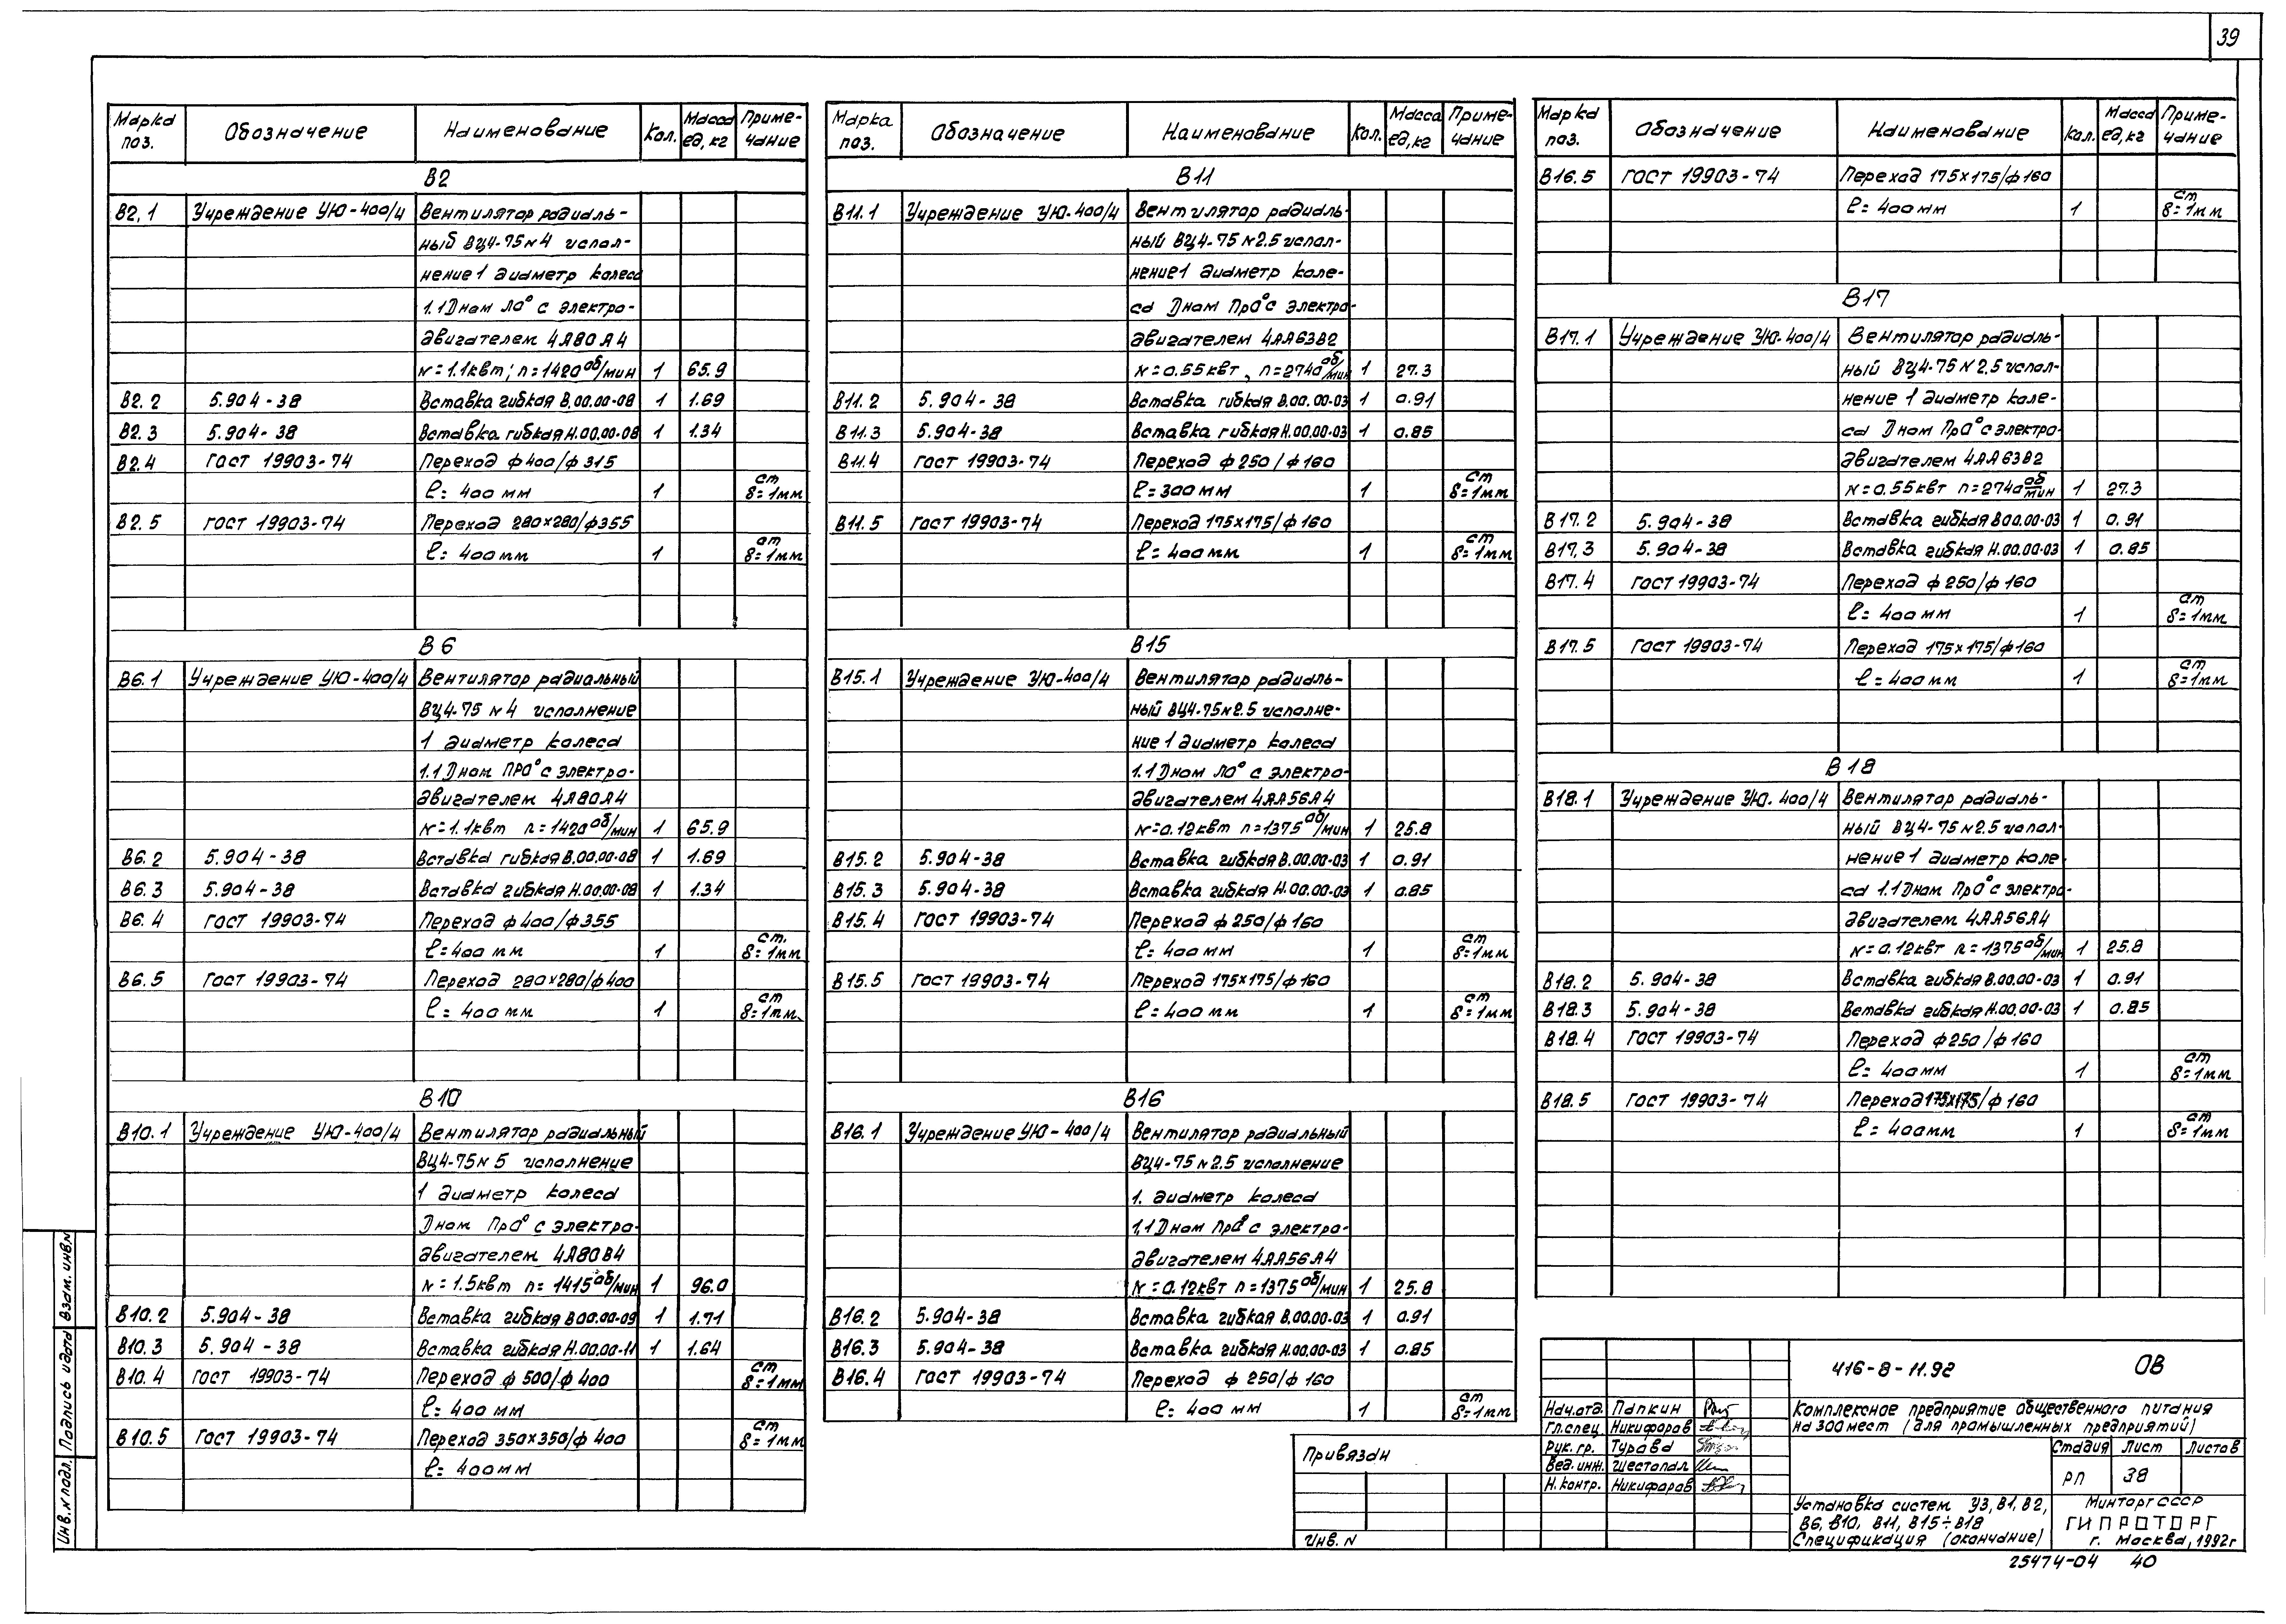 39
Марка поз. Обозначение Наименование Кол. Масса ед, кг Примечание
В2
В2.1 Учреждение УЮ-400/4 Вентилятор радиаль-
ный ВЦ4-75 N4 испол-
нение 1 диаметр колеса
1.1 Dном Л0° с электро-
двигателем 4А80А4
N=1.1квт; n=1420 об/мин 1 65.9
В2.2 5.904-38 Вставка гибкая В.00.00-08 1 1.69
В2.3 5.904-38 Вставка гибкая Н.00.00-08 1 1.34
В2.4 ГОСТ 19903-74 Переход ф400/ф315
ℓ=400 мм 1 ст δ=1мм
В2.5 ГОСТ 19903-74 Переход 280х280/ф355
ℓ=400мм 1 ст δ=1мм
В6
В6.1 Учреждение УЮ-400/4 Вентилятор радиальный
ВЦ4-75 N4 исполнение
1 диаметр колеса
1.1 Dном ПР0° с электро-
двигателем 4А80А4
N=1.1квт n=1420 об/мин 1 65.9
В6.2 5.904-38 Вставка гибкая В.00.00-08 1 1.69
В6.3 5.904-38 Вставка гибкая Н.00.00-08 1 1.34
В6.4 ГОСТ 19903-74 Переход ф400/ф355
ℓ=400 мм 1 ст. δ=1мм
В6.5 ГОСТ 19903-74 Переход 280х280/ф400
ℓ=400мм 1 ст δ=1мм
В10
В10.1 Учреждение УЮ-400/4 Вентилятор радиальный
ВЦ4-75 N5 исполнение
1 диаметр колеса
Dном Пр0° с электро-
двигателем 4А80В4
N=1.5квт n=1415 об/мин 1 96.0
В10.2 5.904-38 Вставка гибкая В00.00-09 1 1.71
В10.3 5.904-38 Вставка гибкая Н.00.00-11 1 1.64
В10.4 ГОСТ 19903-74 Переход ф500/ф400 ст δ=1мм
ℓ=400 мм
В10.5 ГОСТ 19903-74 Переход 350х350/ф400 ст δ=1мм
ℓ=400мм
Марка поз. Обозначение Наименование Кол. Масса ед, кг Примечание
В11
В11.1 Учреждение УЮ-400/4 Вентилятор радиаль-
ный ВЦ4-75 N2.5 испол-
нение 1 диаметр коле-
са Dном Пр0° с электро-
двигателем 4АА63В2
N=0.55квт, n=2740 об/мин 1 27.3
В11.2 5.904-38 Вставка гибкая В.00.00-03 1 0.91
В11.3 5.904-38 Вставка гибкая Н.00.00-03 1 0.85
В11.4 ГОСТ 19903-74 Переход ф250/ф160
ℓ=300 мм 1 ст δ=1мм
В11.5 ГОСТ 19903-74 Переход 175х175/ф160
ℓ=400мм 1 ст δ=1мм
В15
В15.1 Учреждение УЮ-400/4 Вентилятор радиаль-
ный ВЦ4-75 N2.5 исполне-
ние 1 диаметр колеса
1.1 Dном Л0° с электро-
двигателем 4АА56А4
N=0.12квт n=1375 об/мин 1 25.8
В15.2 5.904-38 Вставка гибкая В.00.00-03 1 0.91
В15.3 5.904-38 Вставка гибкая Н.00.00-03 1 0.85
В15.4 ГОСТ 19903-74 Переход ф250/ф160
ℓ=400мм 1 ст δ=1мм
В15.5 ГОСТ 19903-74 Переход 175х175/ф160
ℓ=400мм 1 ст δ=1мм
В16
В16.1 Учреждение УЮ-400/4 Вентилятор радиальный
ВЦ4-75 N2.5 исполнение
1. диаметр колеса
1.1 Dном Пр0° с электро-
двигателем 4АА56А4
N=0.12квт n=1375 об/мин 1 25.8
В16.2 5.904-38 Вставка гибкая В.00.00-03 1 0.91
В16.3 5.904-38 Вставка гибкая Н.00.00-03 1 0.85
В16.4 ГОСТ 19903-74 Переход ф250/ф160
ℓ=400 мм 1 ст δ=1мм
Марка поз. Обозначение Наименование Кол. Масса ед, кг Примечание
В16.5 ГОСТ 19903-74 Переход 175х175/ф160
ℓ=400мм 1 ст δ=1мм
В17
В17.1 Учреждение УЮ-400/4 Вентилятор радиаль-
ный ВЦ4-75 N2.5 испол-
нение 1 диаметр коле-
са Dном Пр0° с электро-
двигателем 4АА63В2
N=0.55квт n=2740 об/мин 1 27.3
В17.2 5.904-38 Вставка гибкая В00.00-03 1 0.91
В17.3 5.904-38 Вставка гибкая Н.00.00-03 1 0.85
В17.4 ГОСТ 19903-74 Переход ф250/ф160
ℓ=400мм 1 ст δ=1мм
В17.5 ГОСТ 19903-74 Переход 175х175/ф160
ℓ=400мм 1 ст δ=1мм
В18
В18.1 Учреждение УЮ-400/4 Вентилятор радиаль-
ный ВЦ4-75 N2.5 испол-
нение 1 диаметр коле
са 1.1 Dном Пр0° с электро-
двигателем 4АА56А4
N=0.12квт n=1375 об/мин 1 25.8
В18.2 5.904-38 Вставка гибкая В.00.00-03 1 0.91
В18.3 5.904-38 Вставка гибкая Н.00.00-03 1 0.85
В18.4 ГОСТ 19903-74 Переход ф250/ф160
ℓ=400мм 1 ст δ=1мм
В18.5 ГОСТ 19903-74 Переход 175х175/ф160
ℓ=400мм 1 ст δ=1мм
Взам. инв.N
Подпись и дата
Инв.N подл.
Привязан
Инв. N
416-8-11.92 ОВ
Нач.отд. Папкин
Гл.спец Никифоров
Рук. гр. Турова
Вед. инж. Шестопал
Н. контр. Никифоров
Комплексное предприятие общественного питания
на 300 мест (для промышленных предприятий)
Стадия Лист Листов
РП 38
Установка систем У3, В1, В2,
В6, В10, В11, В15÷В18
Спецификация (окончание)
Минторг СССР
ГИПРОТОРГ
г. Москва, 1992г
25474-04 40